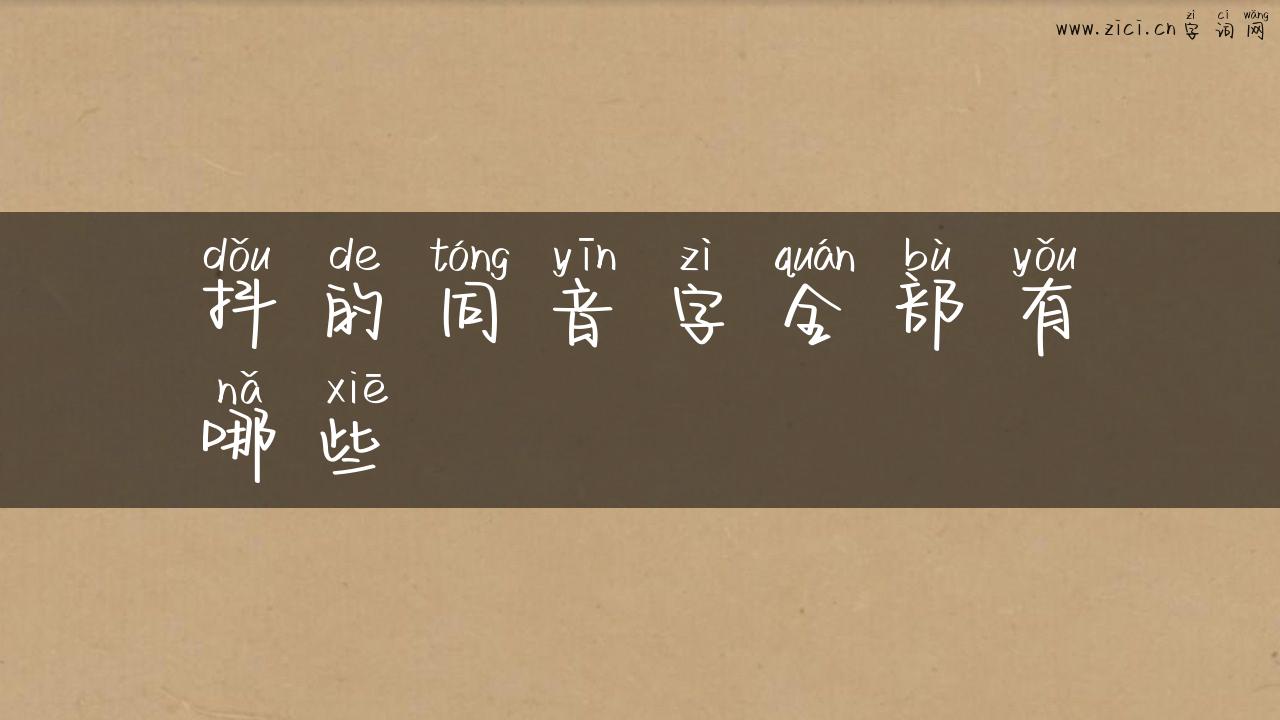 zì cí wǎng
www.zici.cn 字词网
dǒu de tóng yīn zì quán bù yǒu
抖的同音字全部有
nǎ xiē
哪些